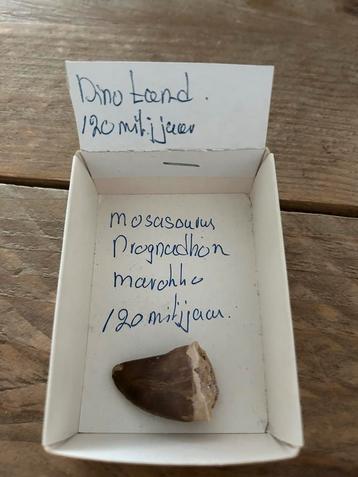 Dino tand.
120 miljjaar
mosasaurus
Prognadhon
marokko
120 miljjaar.